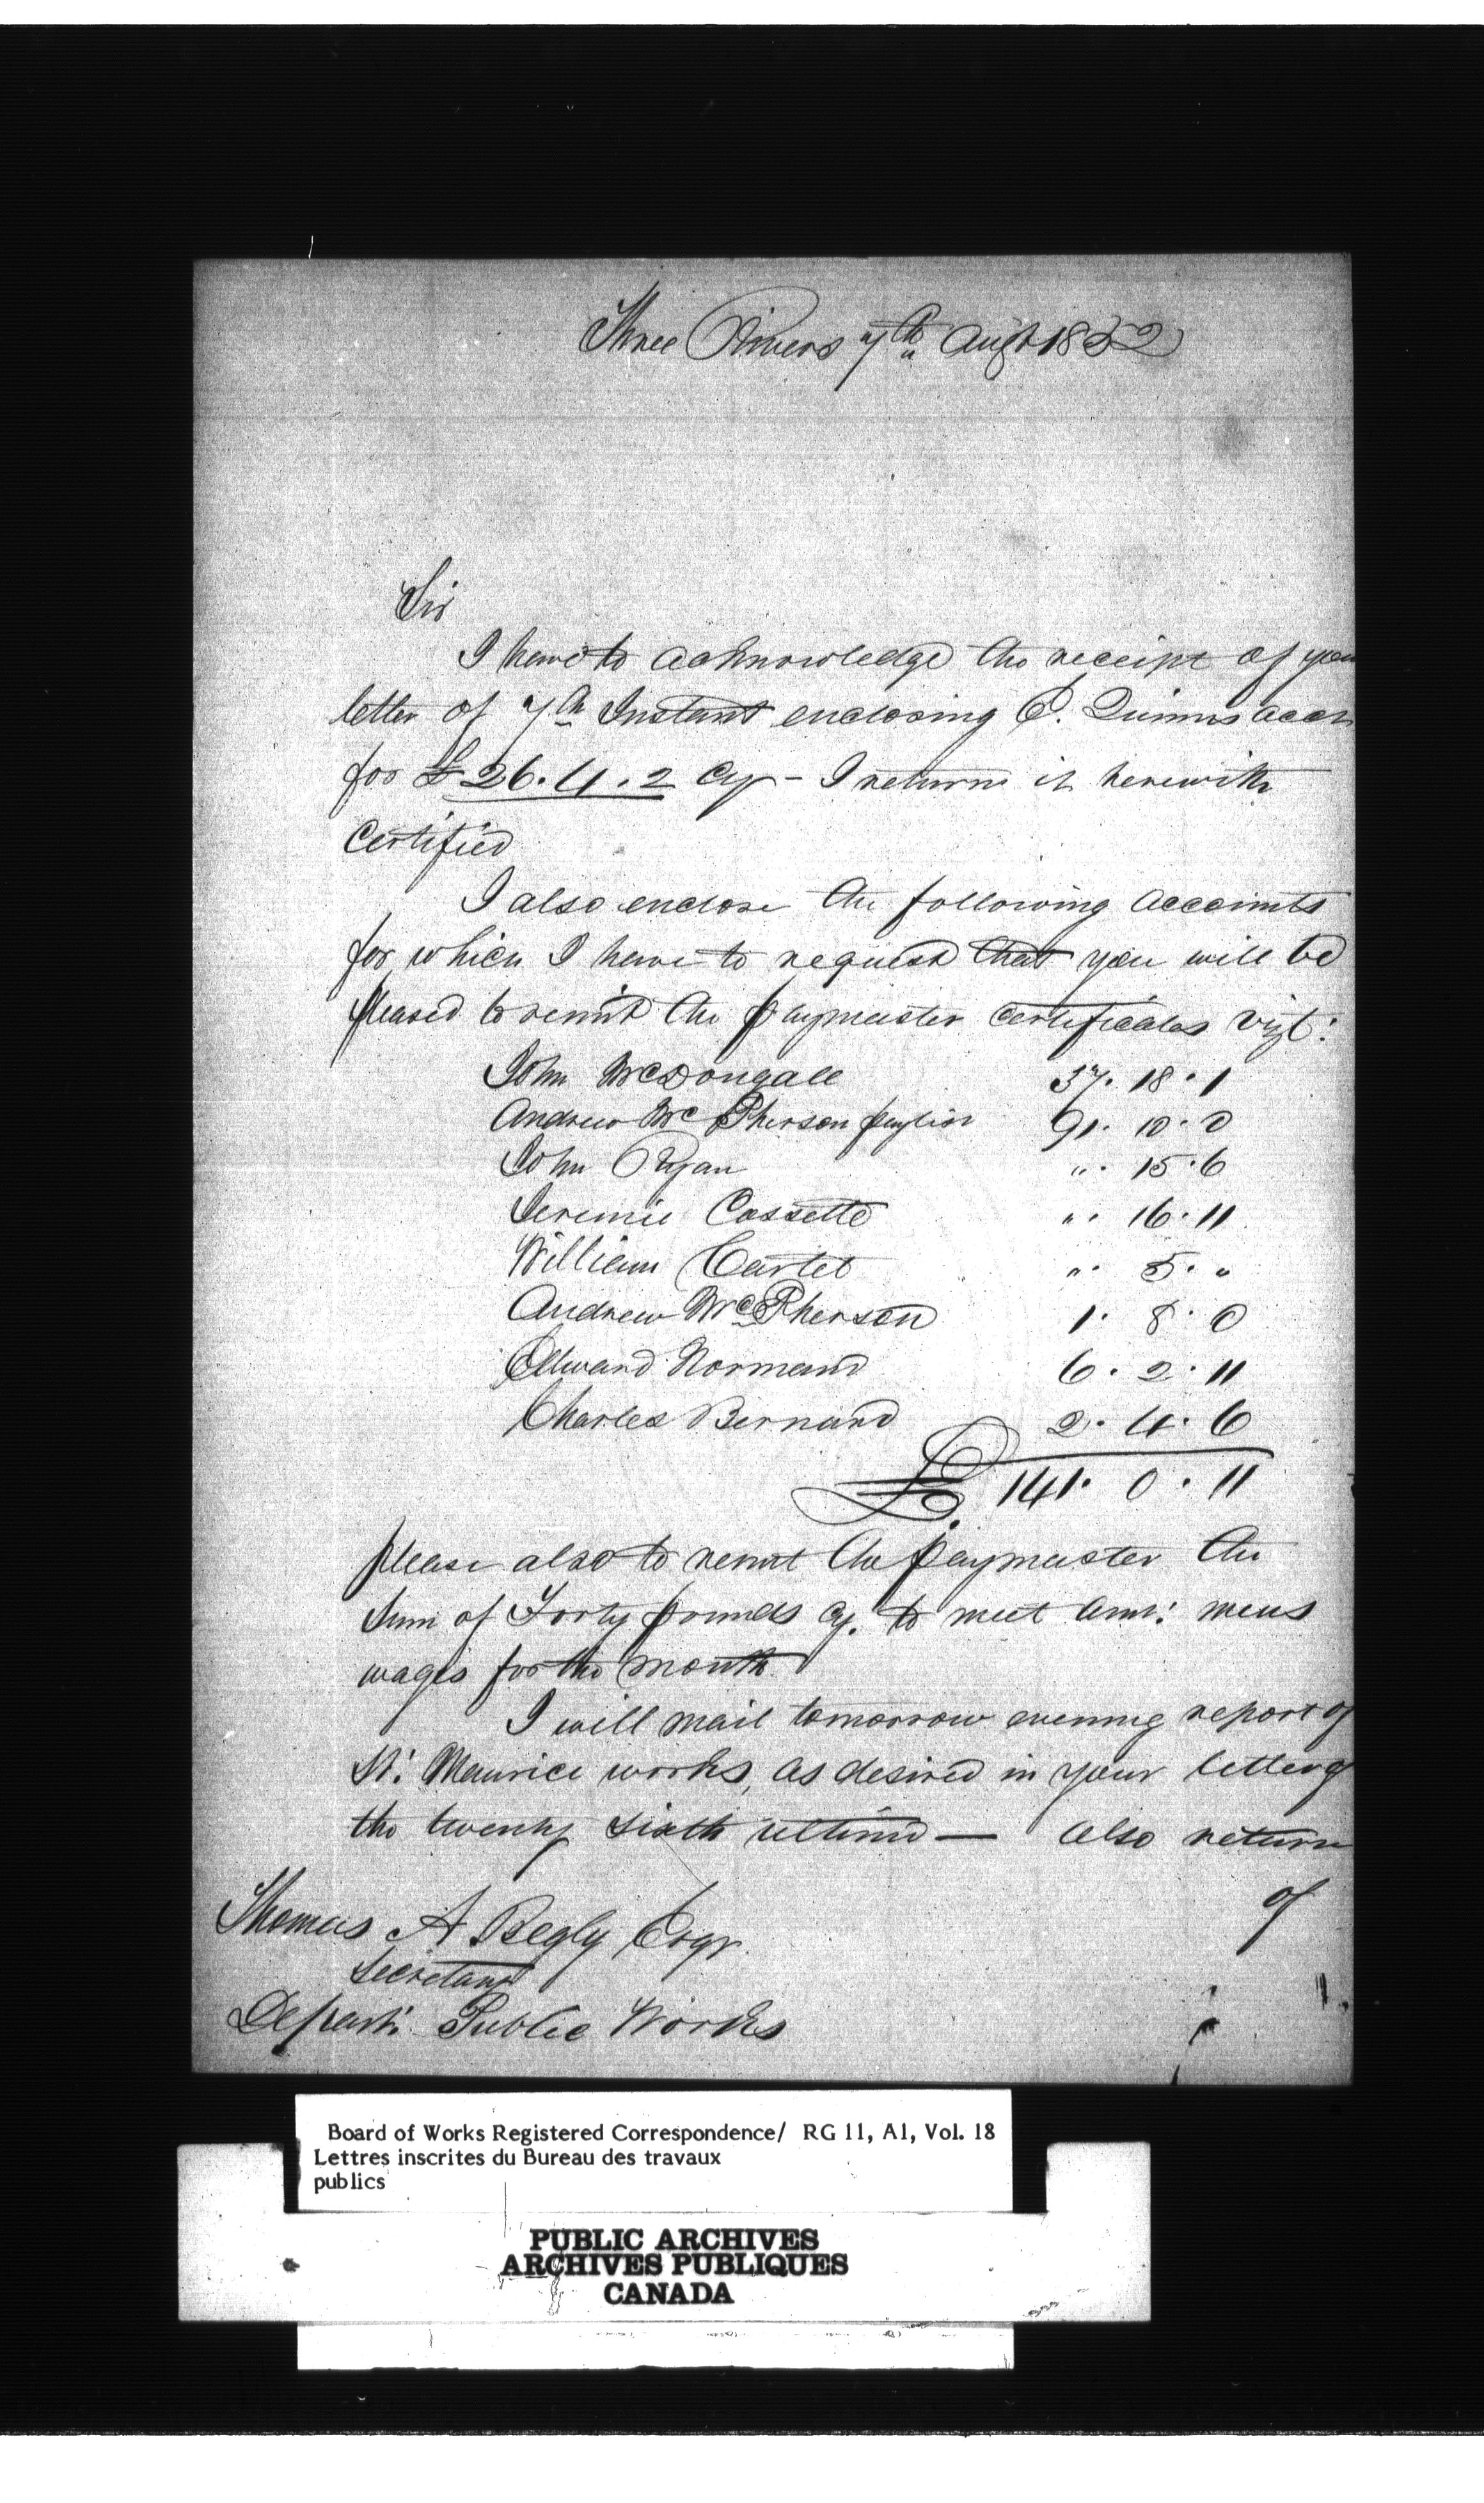 Three Rivers 7th Augt 1852
Sir
I have to acknowledge the receipt of your
letter of 7th Instant enclosing P. Quinns acct
for £26.4.2 Cy - I return it herewith
Certified
I also enclose the following accounts
for which I have to request that you will be
pleased to remit the paymaster certificates vizt:
John McDougall 37.18.1
Andrew McPherson 91.10.0
John Ryan ". 15.6
Jeremie Cossette ". 16.11
William Carter ". 5. "
Andrew McPherson 1. 8. 0
Edward Normand 6. 2. 11
Charles Bernard 2. 4. 6
£ 141. 0. 11
please also to remit the paymaster the
Sum of Forty pounds Cy. to meet mens
wages for the month.
I will mail tomorrow evening report of
St. Maurice works, as desired in your letter of
the twenty sixth ultimo — also return
of
Thomas A Begly Esqr.
Secretary
Depart. Public Works
Board of Works Registered Correspondence/ RG 11, A1, Vol. 18
Lettres inscrites du Bureau des travaux
publics
PUBLIC ARCHIVES
ARCHIVES PUBLIQUES
CANADA